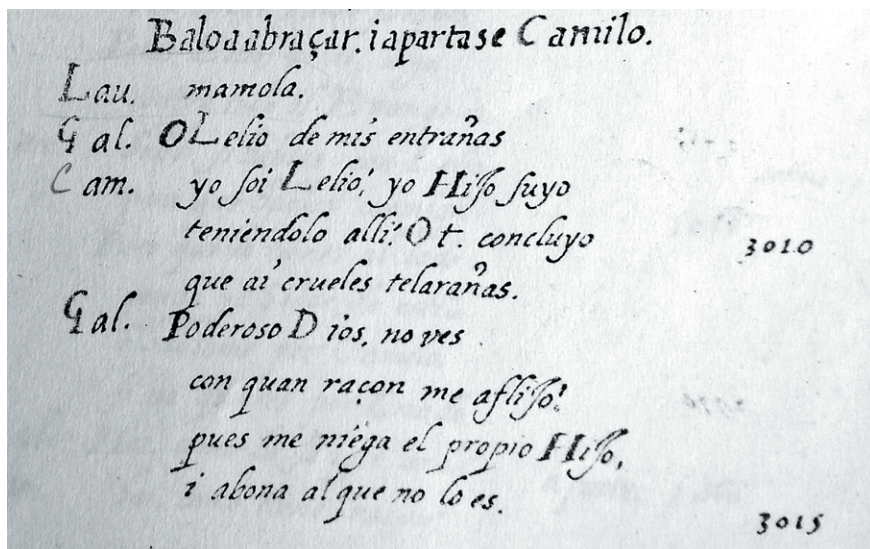 Baloa abraçar, i apartase Camilo.
Lau. mamola.
Gal. O Lelio de mis entrañas
Cam. yo soi Lelio! yo Hijo suyo
teniendolo alli! Ot. concluyo 3010
que ai crueles telarañas.
Gal. Poderoso Dios, no ves
con quan raçon me aflijo!
pues me niega el propio Hijo,
i abona al que no lo es.
3015